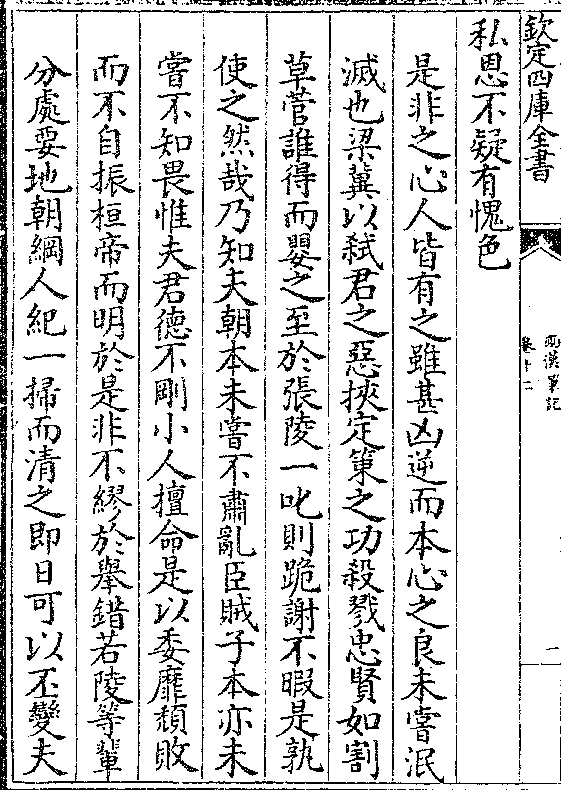 欽定四庫全書
兩漢筆記
卷十二
一
私恩不疑有愧色
是非之心人皆有之雖甚凶逆而本心之良未嘗泯
滅也梁冀以弑君之惡挾定策之功殺戮忠賢如割
草菅誰得而嬰之至於張陵一叱則跪謝不暇是孰
使之然哉乃知夫朝本未嘗不肅亂臣賊子本亦未
嘗不知畏惟夫君德不剛小人擅命是以委靡頹敗
而不自振桓帝而明於是非不繆於舉錯若陵等輩
分處要地朝綱人紀一掃而清之即日可以丕變夫